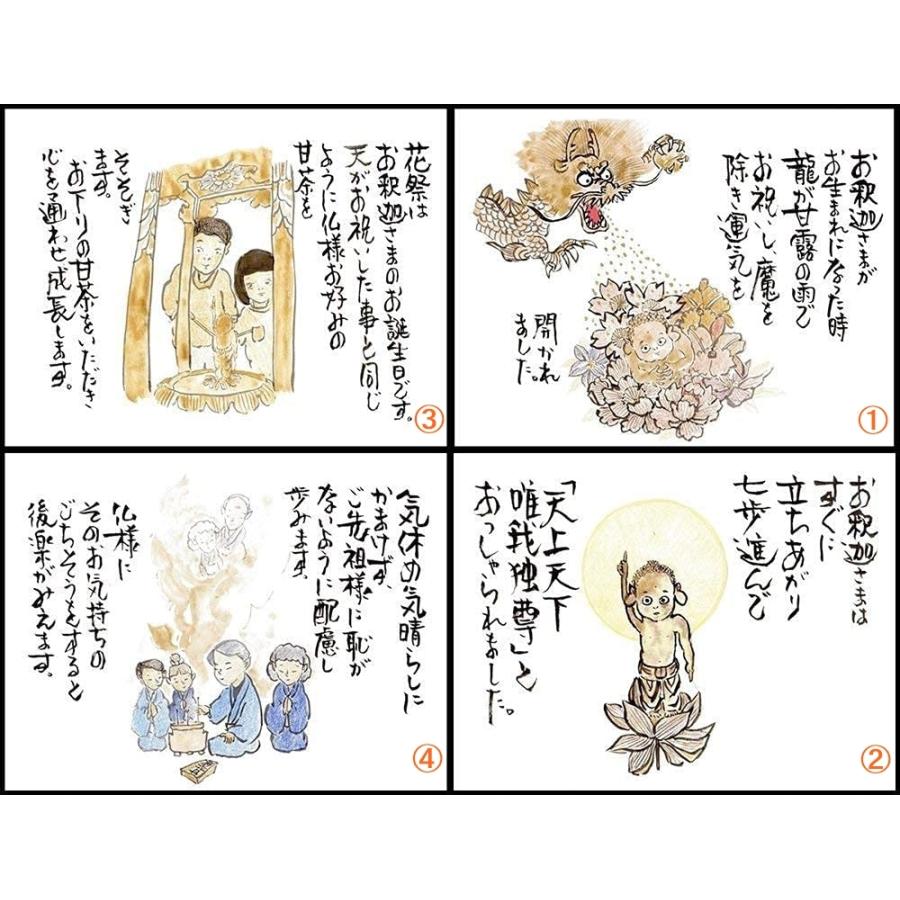 お釈迦さまが
お生まれになった時
龍が甘露の雨で
お祝いし魔を
除き運気を
開かれ
ました。
①
お釈迦さまは
すぐに
立ちあがり
七歩進んで
「天上天下
唯我独尊」と
おっしゃられました。
②
花祭は
お釈迦さまのお誕生日です。
天がお祝いした事と同じ
ように仏様お好みの
甘茶を
そそぎ
ます。
お下りの甘茶をいただき
心を通わせ成長します。
③
気休め気晴らしに
かまけず、
ご先祖様に恥が
ないように配慮し
歩みます。
仏様に
そのお気持ちの
ごちそうをすると
後楽がみえます。
④